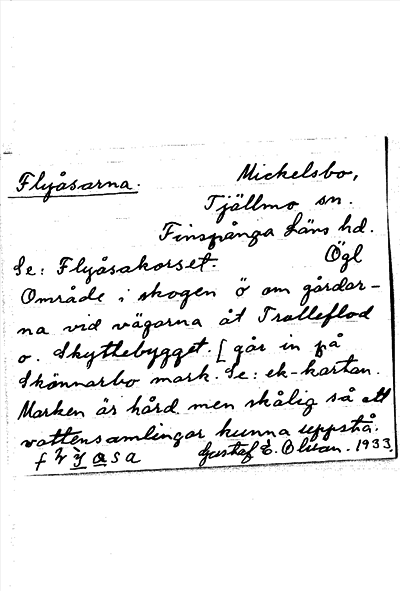 Flyåsarna.
Mickelsbo,
Tjällmo sn.
Finspånga Läns hd.
Ögl
Se: Flyåsakorset.
Område i skogen ö om gårdar-
na vid vägarna åt Trolleflod
o. Skyttebygget. [går in på
Skönnarbo mark. Se: ek-kartan.
Marken är hård men skålig så att
vattensamlingar kunna uppstå.
Gustaf E. Olsson. 1933.